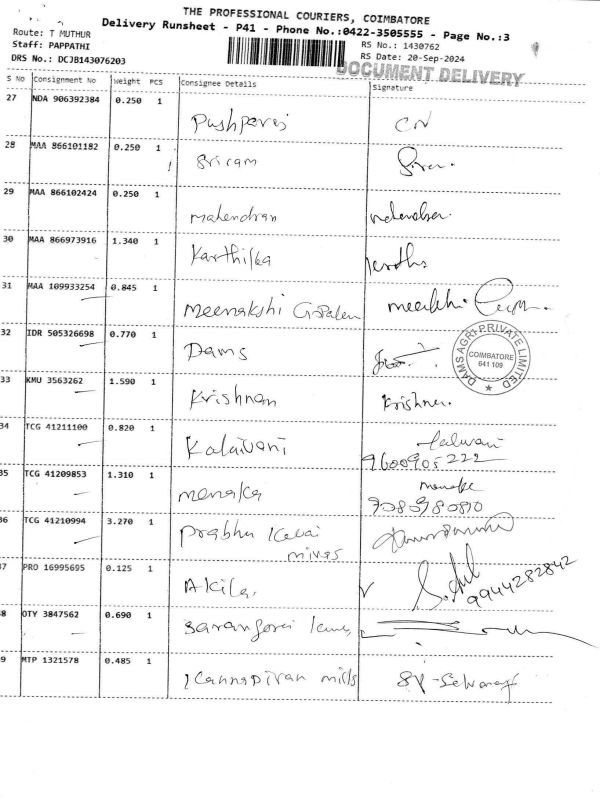 THE PROFESSIONAL COURIERS, COIMBATORE
Delivery Runsheet - P41 - Phone No.:0422-3505555 - Page No.:3
Route: T MUTHUR
Staff: PAPPATHI
DRS No.: DCJB143076203
RS No.: 1430762
RS Date: 20-Sep-2024
DOCUMENT DELIVERY
S No Consignment No Weight PCS Consignee Details Signature
27 NDA 906392384 0.250 1 Pushparaj CN
28 MAA 866101182 0.250 1 Sriram
29 MAA 866102424 0.250 1 Mahendran
30 MAA 866973916 1.340 1 Karthika
31 MAA 109933254 0.845 1 Meenakshi Gopalan
32 IDR 505326698 0.770 1 Dams
DAMS AGRI PRIVATE LIMITED
COIMBATORE
641 109
33 KMU 3563262 1.590 1 Krishnan
34 TCG 41211100 0.820 1 Kalaivani
9600905222
35 TCG 41209853 1.310 1 menaka
36 TCG 41210994 3.270 1 Prabhu
37 PRO 16995695 0.125 1 Akila, 9944282842
38 OTY 3847562 0.690 1
39 MTP 1321578 0.485 1 Kannapiran mills